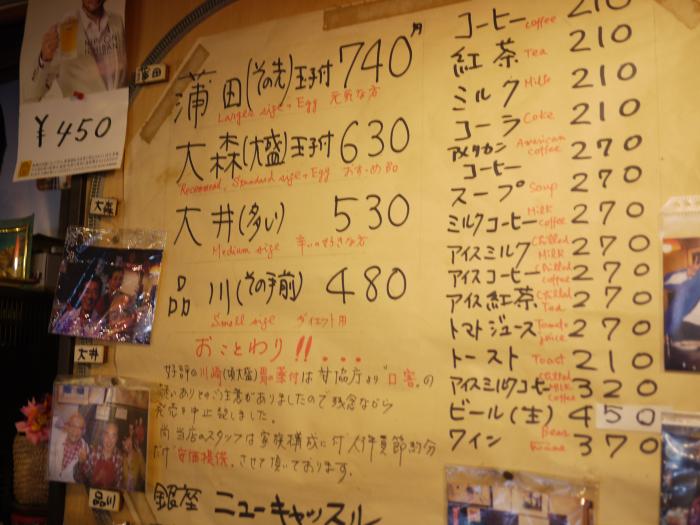 ¥450
蒲田
大森
大井
品川
蒲田(その先)玉子付 740円
Larger size + Egg 元気な方
大森(大盛)玉子付 630
Recommend, Standard size + Egg おすすめ品
大井(多い) 530
Medium size 辛いの好きな方
品川(その手前) 480
Small size ダイエット用
おことわり!!...
好評の川崎(頃大盛)男の薬付は安協庁より"口害"の
疑いありとのご注意がありましたので残念ながら
発売を中止致しました。
尚当店のスタッフは家族構成に付人件費節約分
だけ"安価提供"させて頂いております。
銀座 ニューキャッスル
コーヒー coffee 210
紅茶 Tea 210
ミルク Milk 210
コーラ Coke 210
アメリカン コーヒー American coffee 270
スープ Soup 270
ミルクコーヒー Milk coffee 270
アイスミルク Chilled Milk 270
アイスコーヒー Chilled coffee 270
アイス紅茶 Chilled Tea 270
トマトジュース Tomato juice 270
トースト Toast 210
アイスミルクコーヒー Chilled Milk coffee 320
ビール(生) Beer 450
ワイン Wine 370